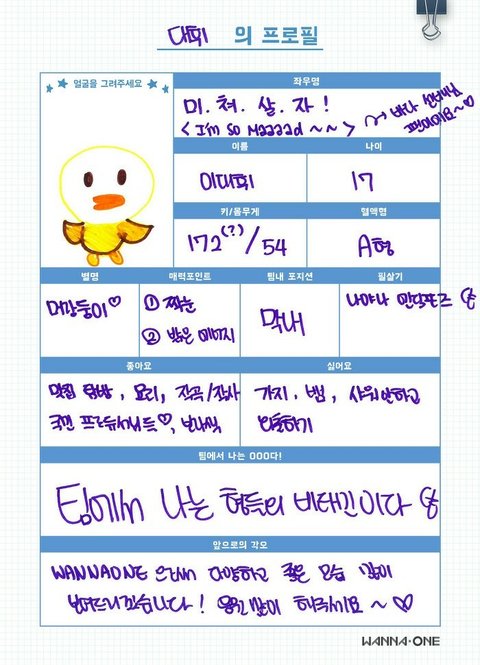 대휘 의 프로필
얼굴을 그려주세요
좌우명
미.쳐.살.자!
< I'm so Maaaad ~~ > → 바다 선배님
팬이에요~♡
이름
나이
이대휘
17
키/몸무게
혈액형
172(?)/54
A형
별명
매력포인트
팀내 포지션
필살기
머랭둥이♡
① 짝눈
② 밝은 에너지
막내
나야나 엔딩포즈
좋아요
싫어요
맛집 탐방, 요리, 작곡/작사
국민 프로듀서님들♡,
가지, 뱀, 샤워안하고
외출하기
팀에서 나는 OOO다!
팀에서 나는 형들의 비타민이다
앞으로의 각오
WANNAONE 으로서 다양하고 좋은 모습 많이
보여드리겠습니다! 응원 많이 해주세요~♡
WANNA·ONE